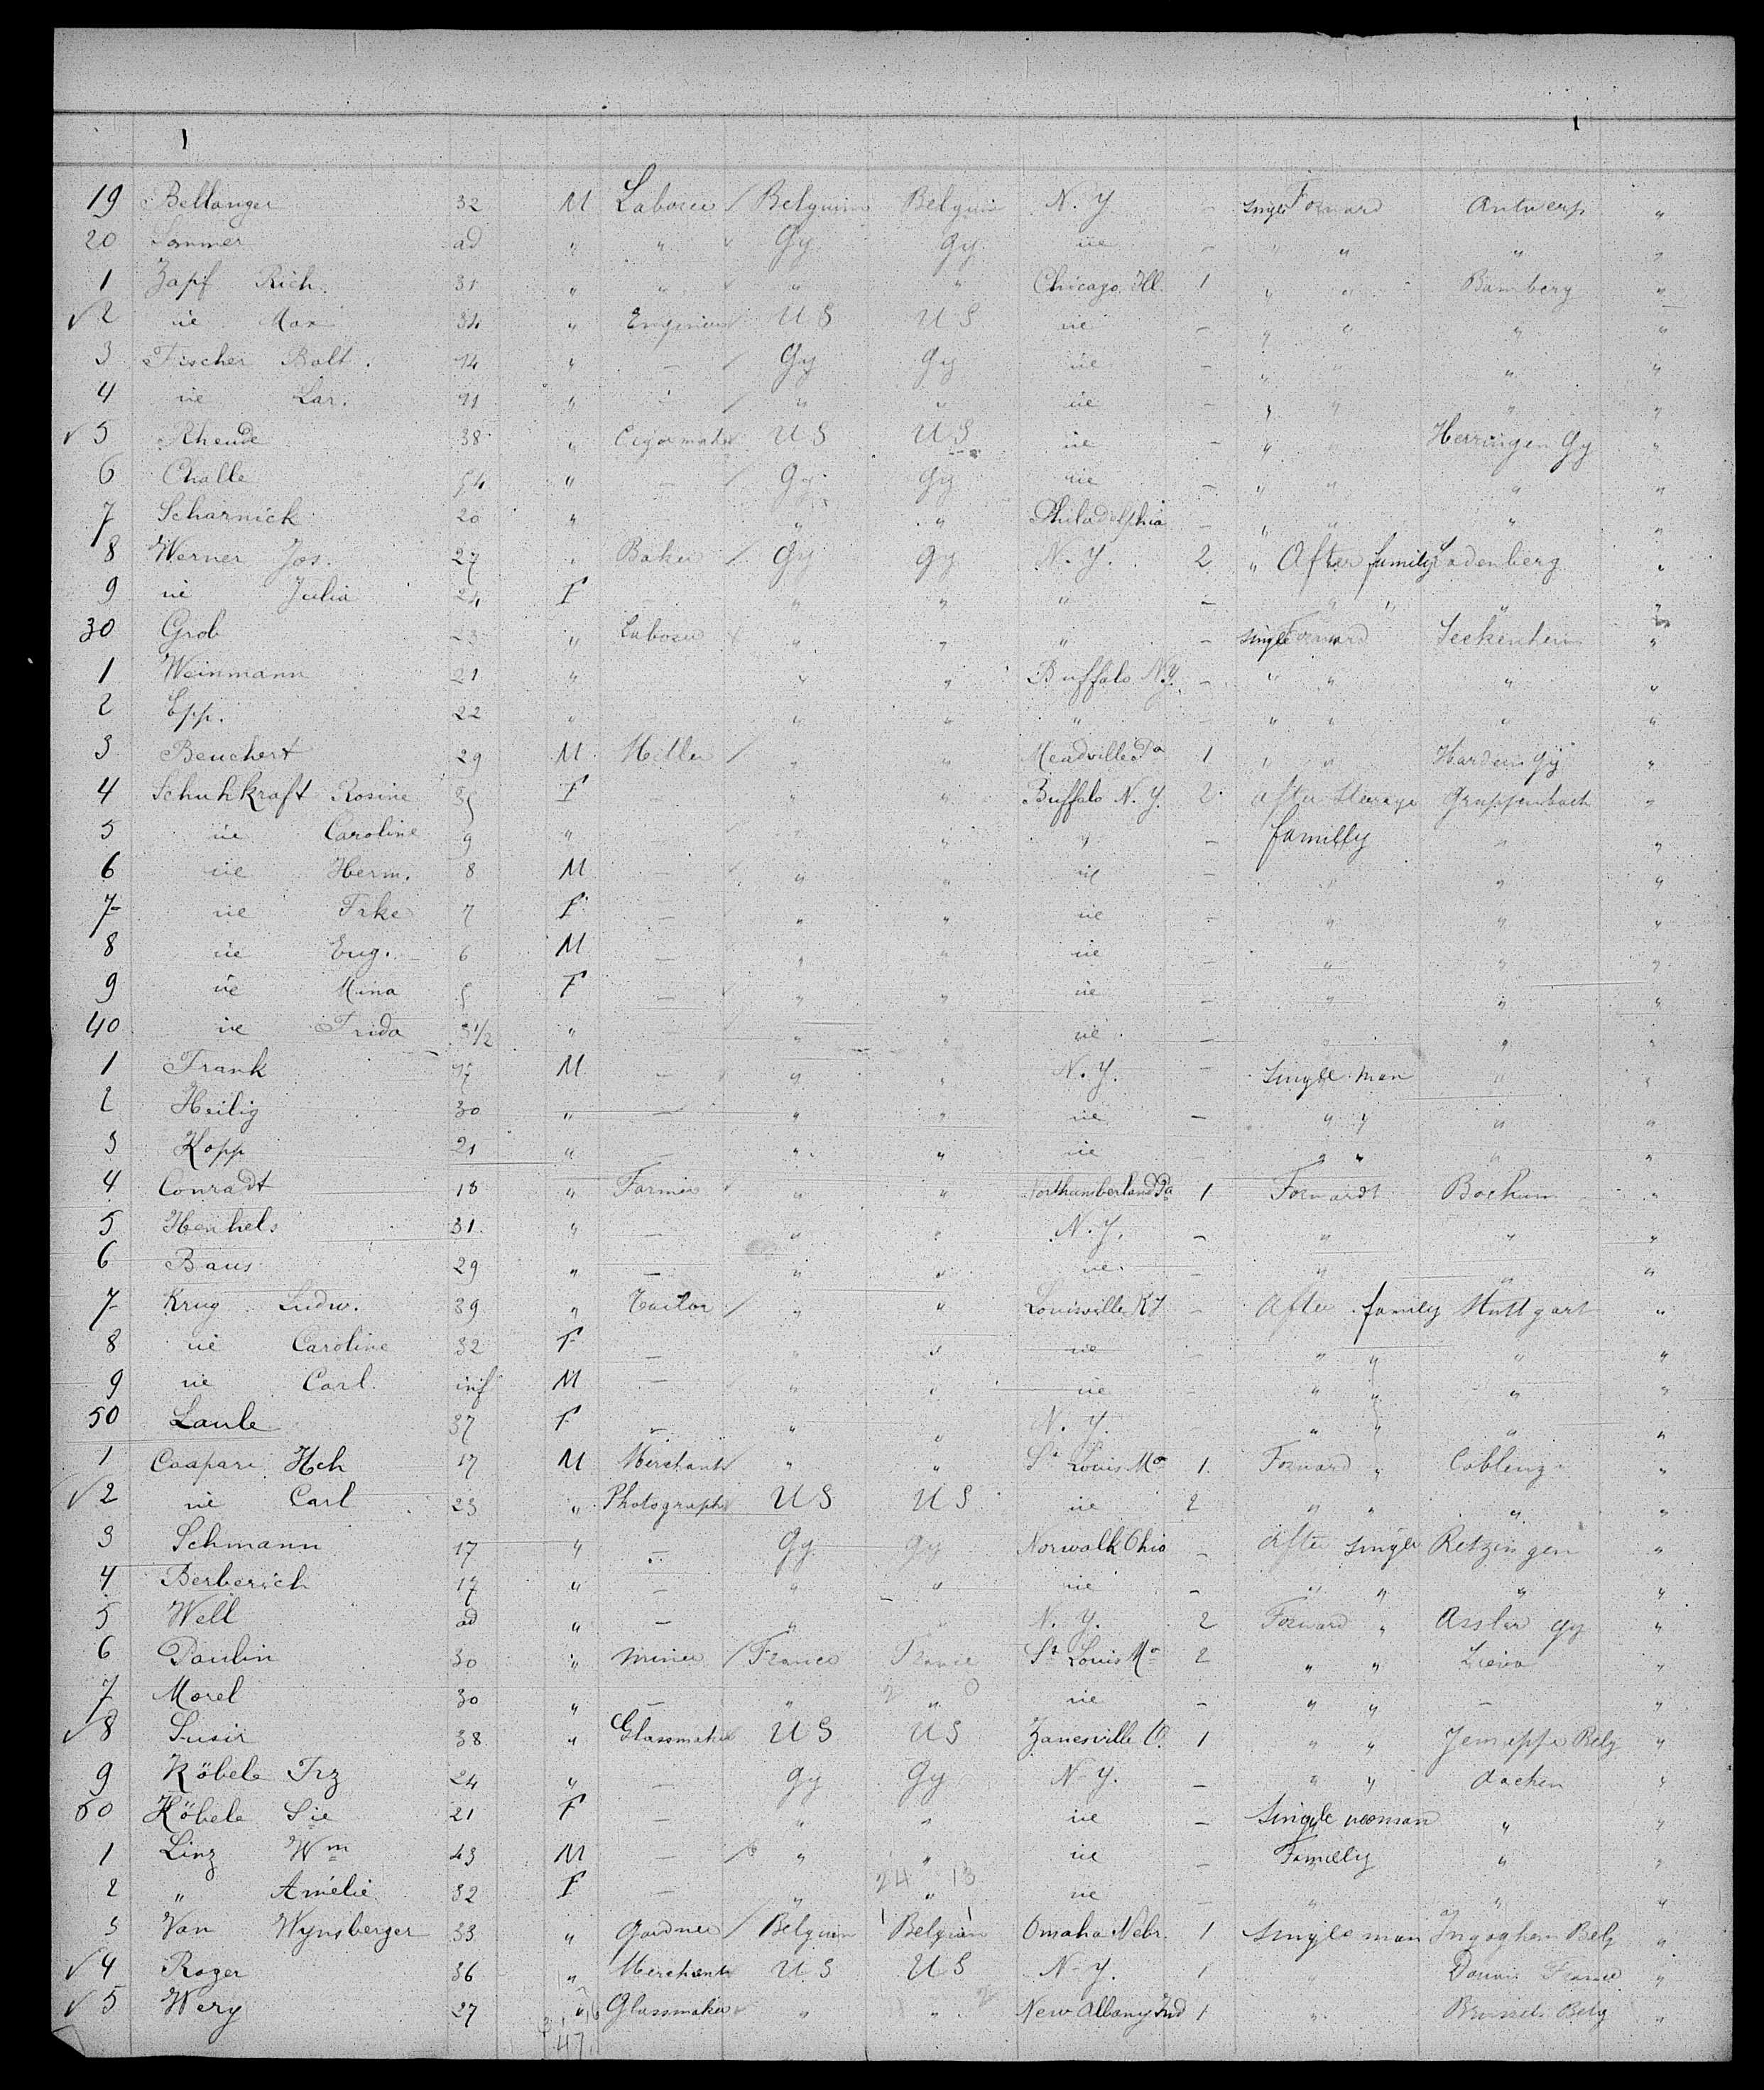 19 Bellanger 32 M Laborer / Belguim Belguim N. Y. – single Forward Antwerp "
20 Sommer ad " " Gy Gy ие – " " " "
1 Zapf Rich. 31 " " " " Chicago Ill. 1 " " Bamberg "
√2 ие Max 34 " Engineer U S U S ие – " " " "
3 Fischer Balt. 14 " – / Gy Gy ие – " " " "
4 ие Lar. 11 " – / " " ие – " " " "
√5 Rheude 38 " Cigarmaker U S U S ие – " " Herringen Gy "
6 Challe 54 " – Gy Gy ие – " " " "
7 Scharnick 20 " " " Philadelphia – " " " "
8 Werner Jos. 27 " Baker / Gy Gy N. Y. 2 " After family Ladenberg "
9 ие Julia 24 F – " " " – " " " "
30 Grob 23 " Laborer " " " – single Forward Seckenheim "
1 Weinmann 21 " " " Buffalo N.Y. – " " " "
2 Epp. 22 " – " " " – " " " "
3 Beuchert 29 M Miller / " " Meadville Pa 1 " " Gy "
4 Schuhkraft Rosine 35 F – " " Buffalo N. Y. 2 after Steerage Gruppenbach "
5 ие Caroline 9 " – " " " – familly " "
6 ие Herm. 8 M – " " ие – " " "
7 ие Frke 7 F – " " ие – " " "
8 ие Eug. 6 M – " " ие – " " "
9 ие Mina 5 F – " " ие – " " "
40 ие Frida 3 1/2 " – " " ие – " " "
1 Frank 17 M – " " N. Y. – single man " "
2 Heilig 30 " – " " ие – " " " "
3 Kopp 21 " – " " ие – " " " "
4 Conradt 18 " Farmer " " Northumberland Pa 1 Forwardt Bochum "
5 Henkels 31. " – " " N. Y. – " " "
6 Baus 29 " – " " ие – " " "
7 Krug Ludw. 39 " Tailor / " " Louisville Ky – After family Stuttgart "
8 ие Caroline 32 F – " " ие – " " " "
9 ие Carl. inf M – " " ие – " " " "
50 Laule 37 F – " " N. Y. " " " "
1 Caapari Hch 17 M Merchant / " " St Louis Mo 1. Forward " Coblenz "
√2 ие Carl 23 " Photograph U S U S ие 2 " " " "
3 Schmann 17 " – Gy Gy Norwalk Ohio – After single Retzingen "
4 Berberich 17 " – " " ие – " " " "
5 Well ad " – " " N. Y. 2 Forward " Asslar Gy "
6 Paulin 30 " miner / France France St Louis Mo 2 " " "
7 Morel 30 " – " " ие – " " – "
√8 Susir 38 " Glassmaker U S U S Zanesville O. 1 " " Jemeppe Belg "
9 Köbele Frz 24 " – Gy Gy N. Y. – " " Aachen "
60 Köbele Sie 21 F – " " ие – Single woman " "
1 Linz Wm 43 M – / " " ие – Familly " "
2 " Amélie 32 F – " 24 " 13 ие – " " "
3 Van Wynsberger 33 " Gardner / Belguim Belguim Omaha Nebr. 1 single man Ingoghem Belg "
√4 Roger 36 " Merchant U S U S N. Y. 1 " Douai France "
√5 Wery 27 " Glassmaker " " New Albany Ind 1 " Brussels Belg "
47